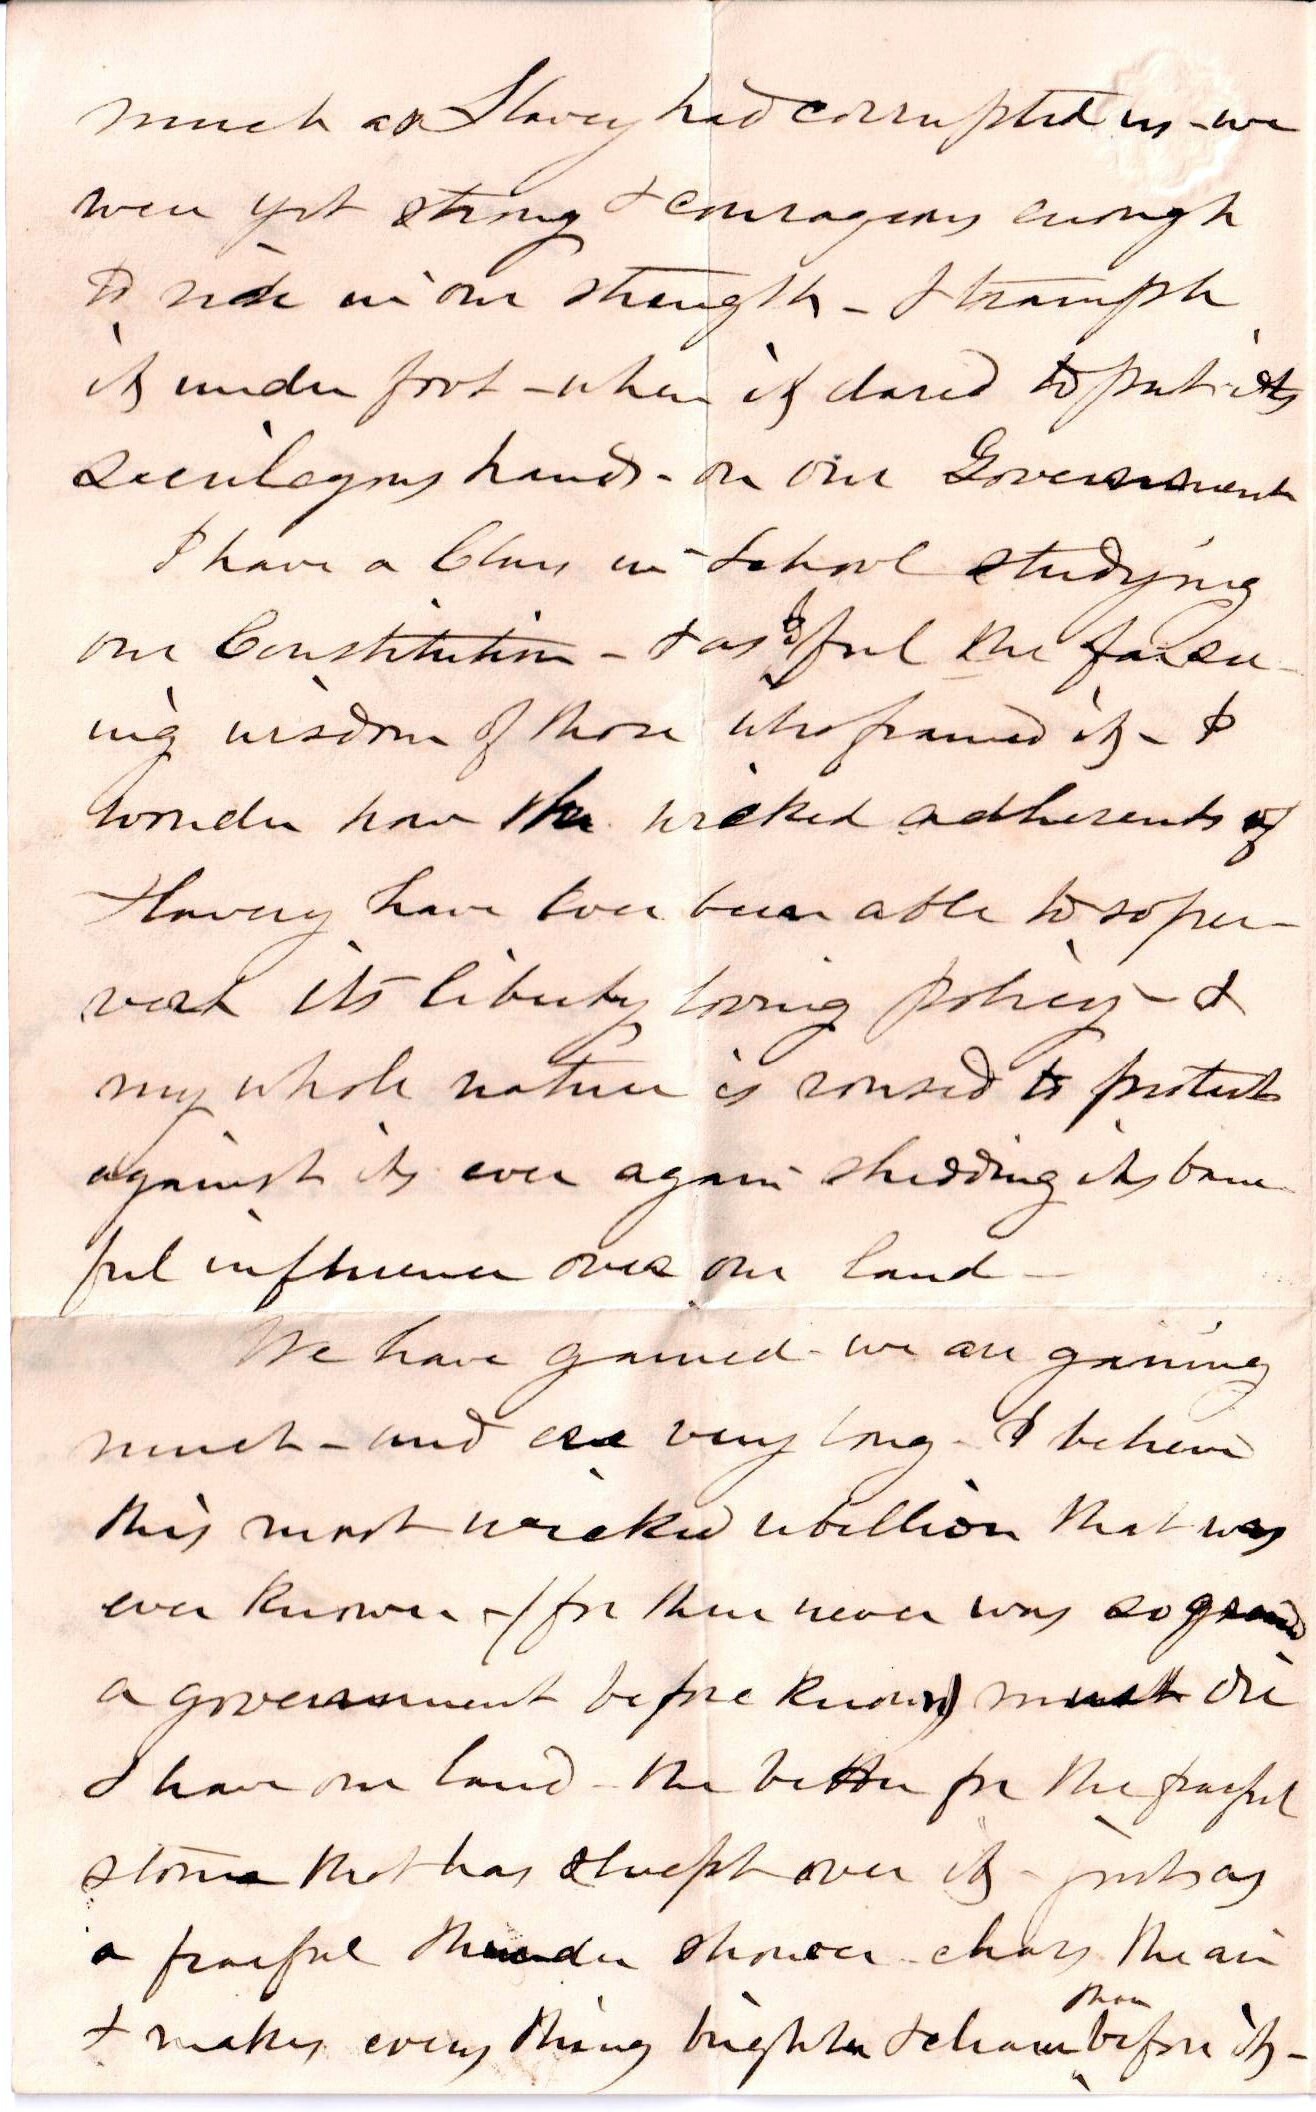 much as Slavery had corrupted us - we
were yet strong & courageous enough
to rise in our strength - & trample
it under foot - when it dared to put its
sacrilegous hands - on our Government
I have a Class in School studying
our Constitution - & as I feel the farsee-
ing wisdom of those who framed it - I
wonder how the wicked adherents of
Slavery have ever been able to so per-
vert its liberty loving policy - &
my whole nature is roused to protest
against its ever again shedding its bane-
ful influence over our land -
We have gained - we are gaining
much - and ere very long - I believe
this most wicked rebellion that was
ever known - (for there never was so grand
a government before known) must die
& leave our land - the better for the fearful
storm that has swept over it - just as
a fearful thunder shower - clears the air
& makes every thing brighter & cleaner than before it -